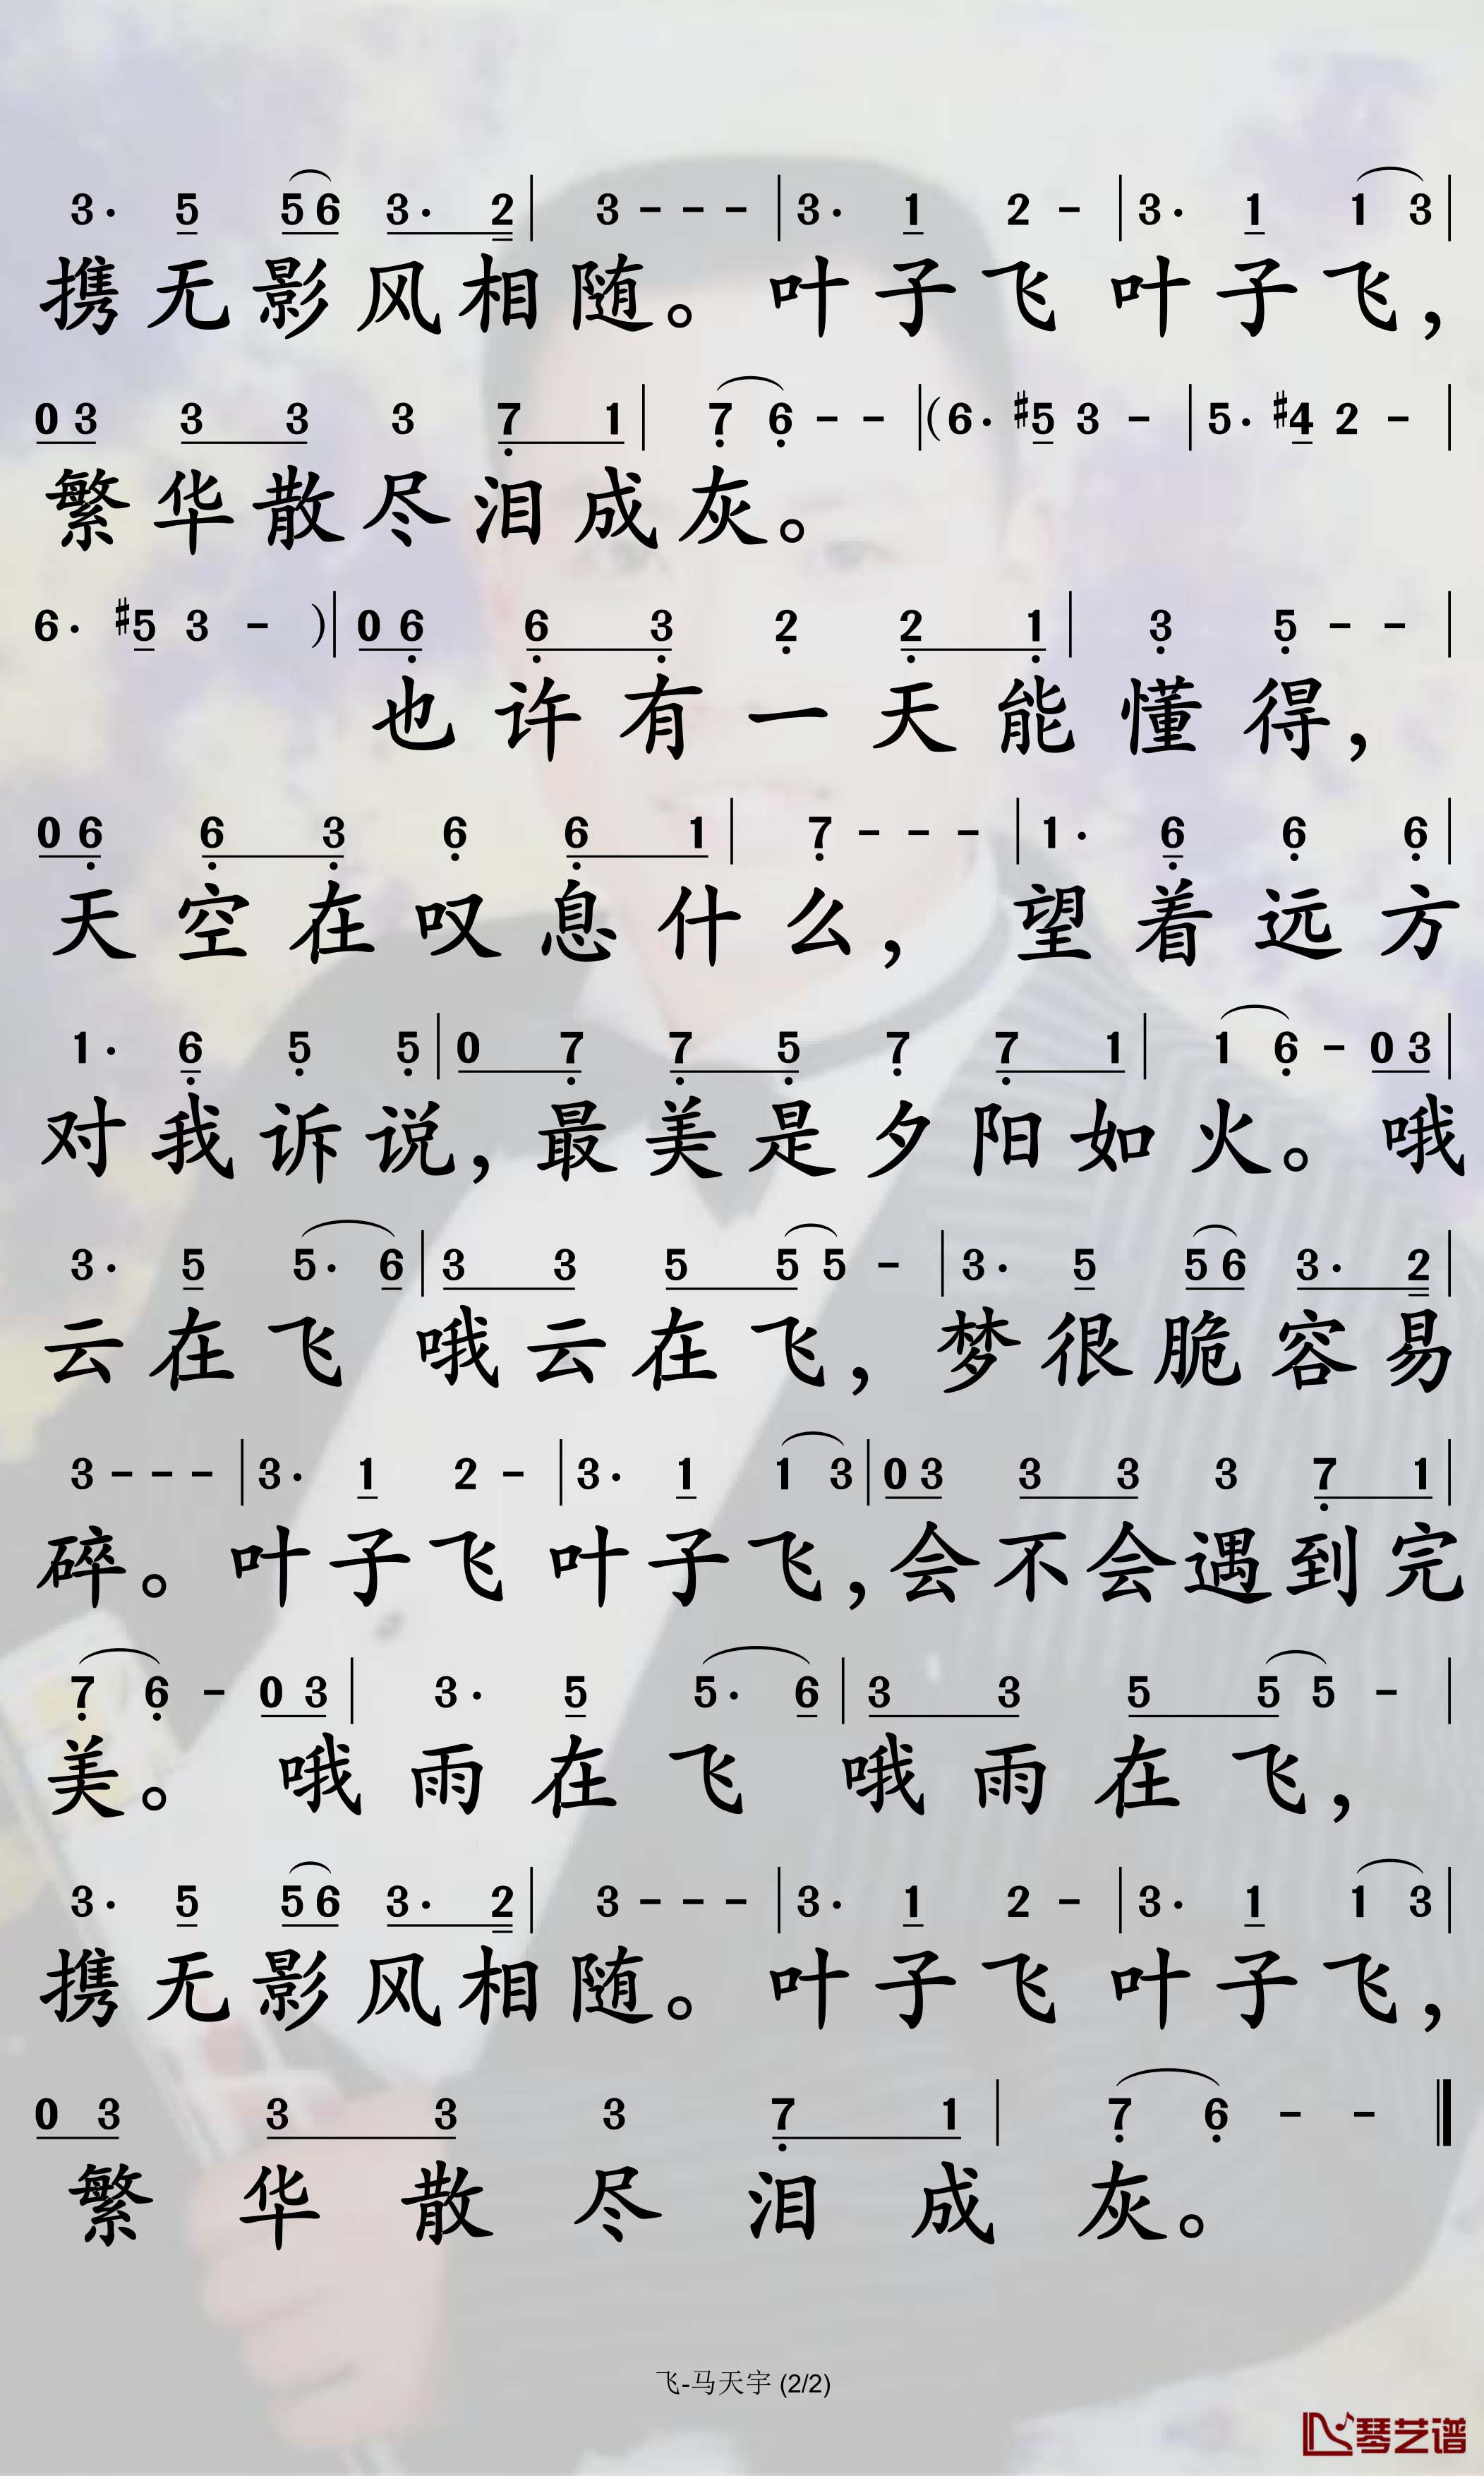 3· 5 56 3· 2 | 3 - - - | 3· 1 2 - | 3· 1 1 3 |
携无影风相随。叶子飞 叶子飞，
0 3 3 3 3 7 1 | 7 6 - - | (6· #5 3 - | 5· #4 2 - |
繁华散尽泪成灰。
6· #5 3 - ) | 0 6 6 3 2 2 1 | 3 5 - - |
也许有一天能懂得，
0 6 6 3 6 6 1 | 7 - - - | 1· 6 6 6 |
天空在叹息什么，望着远方
1· 6 5 5 | 0 7 7 5 7 7 1 | 1 6 - 0 3 |
对我诉说，最美是夕阳如火。哦
3· 5 5· 6 | 3 3 5 5 5 - | 3· 5 5 6 3· 2 |
云在飞 哦云在飞，梦很脆容易
3 - - - | 3· 1 2 - | 3· 1 1 3 | 0 3 3 3 3 7 1 |
碎。叶子飞 叶子飞，会不会遇到完
7 6 - 0 3 | 3· 5 5· 6 | 3 3 5 5 5 - |
美。哦雨在飞 哦雨在飞，
3· 5 5 6 3· 2 | 3 - - - | 3· 1 2 - | 3· 1 1 3 |
携无影风相随。叶子飞 叶子飞，
0 3 3 3 3 7 1 | 7 6 - - ‖
繁华散尽泪成灰。
飞-马天宇 (2/2)
琴艺谱